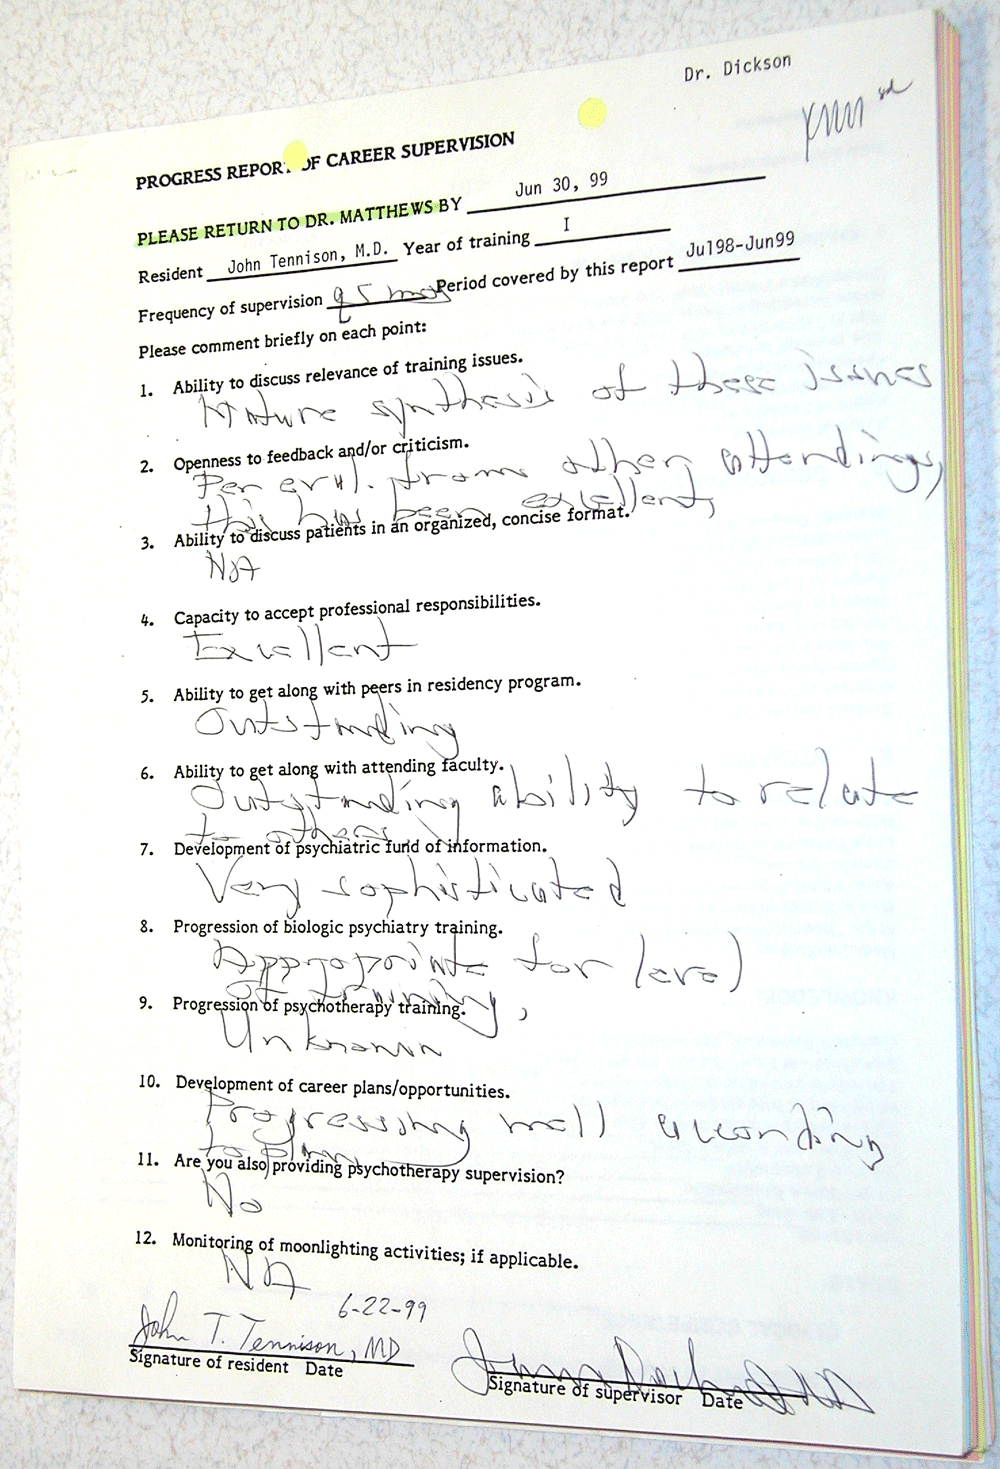 Dr. Dickson
PROGRESS REPORT OF CAREER SUPERVISION
PLEASE RETURN TO DR. MATTHEWS BY Jun 30, 99
Resident John Tennison, M.D. Year of training I
Frequency of supervision q 5 mos Period covered by this report Jul98-Jun99
Please comment briefly on each point:
1. Ability to discuss relevance of training issues.
Mature synthesis of these issues
2. Openness to feedback and/or criticism.
Per eval. from other attendings,
this has been excellent,
3. Ability to discuss patients in an organized, concise format.
NA
4. Capacity to accept professional responsibilities.
Excellent
5. Ability to get along with peers in residency program.
Outstanding
6. Ability to get along with attending faculty.
Outstanding ability to relate
to others
7. Development of psychiatric fund of information.
Very sophisticated
8. Progression of biologic psychiatry training.
Appropriate for level
of training,
9. Progression of psychotherapy training.
Unknown
10. Development of career plans/opportunities.
Progressing well according
to plan
11. Are you also providing psychotherapy supervision?
No
12. Monitoring of moonlighting activities; if applicable.
NA
6-22-99
John T. Tennison, MD
Signature of resident Date
Signature of supervisor Date